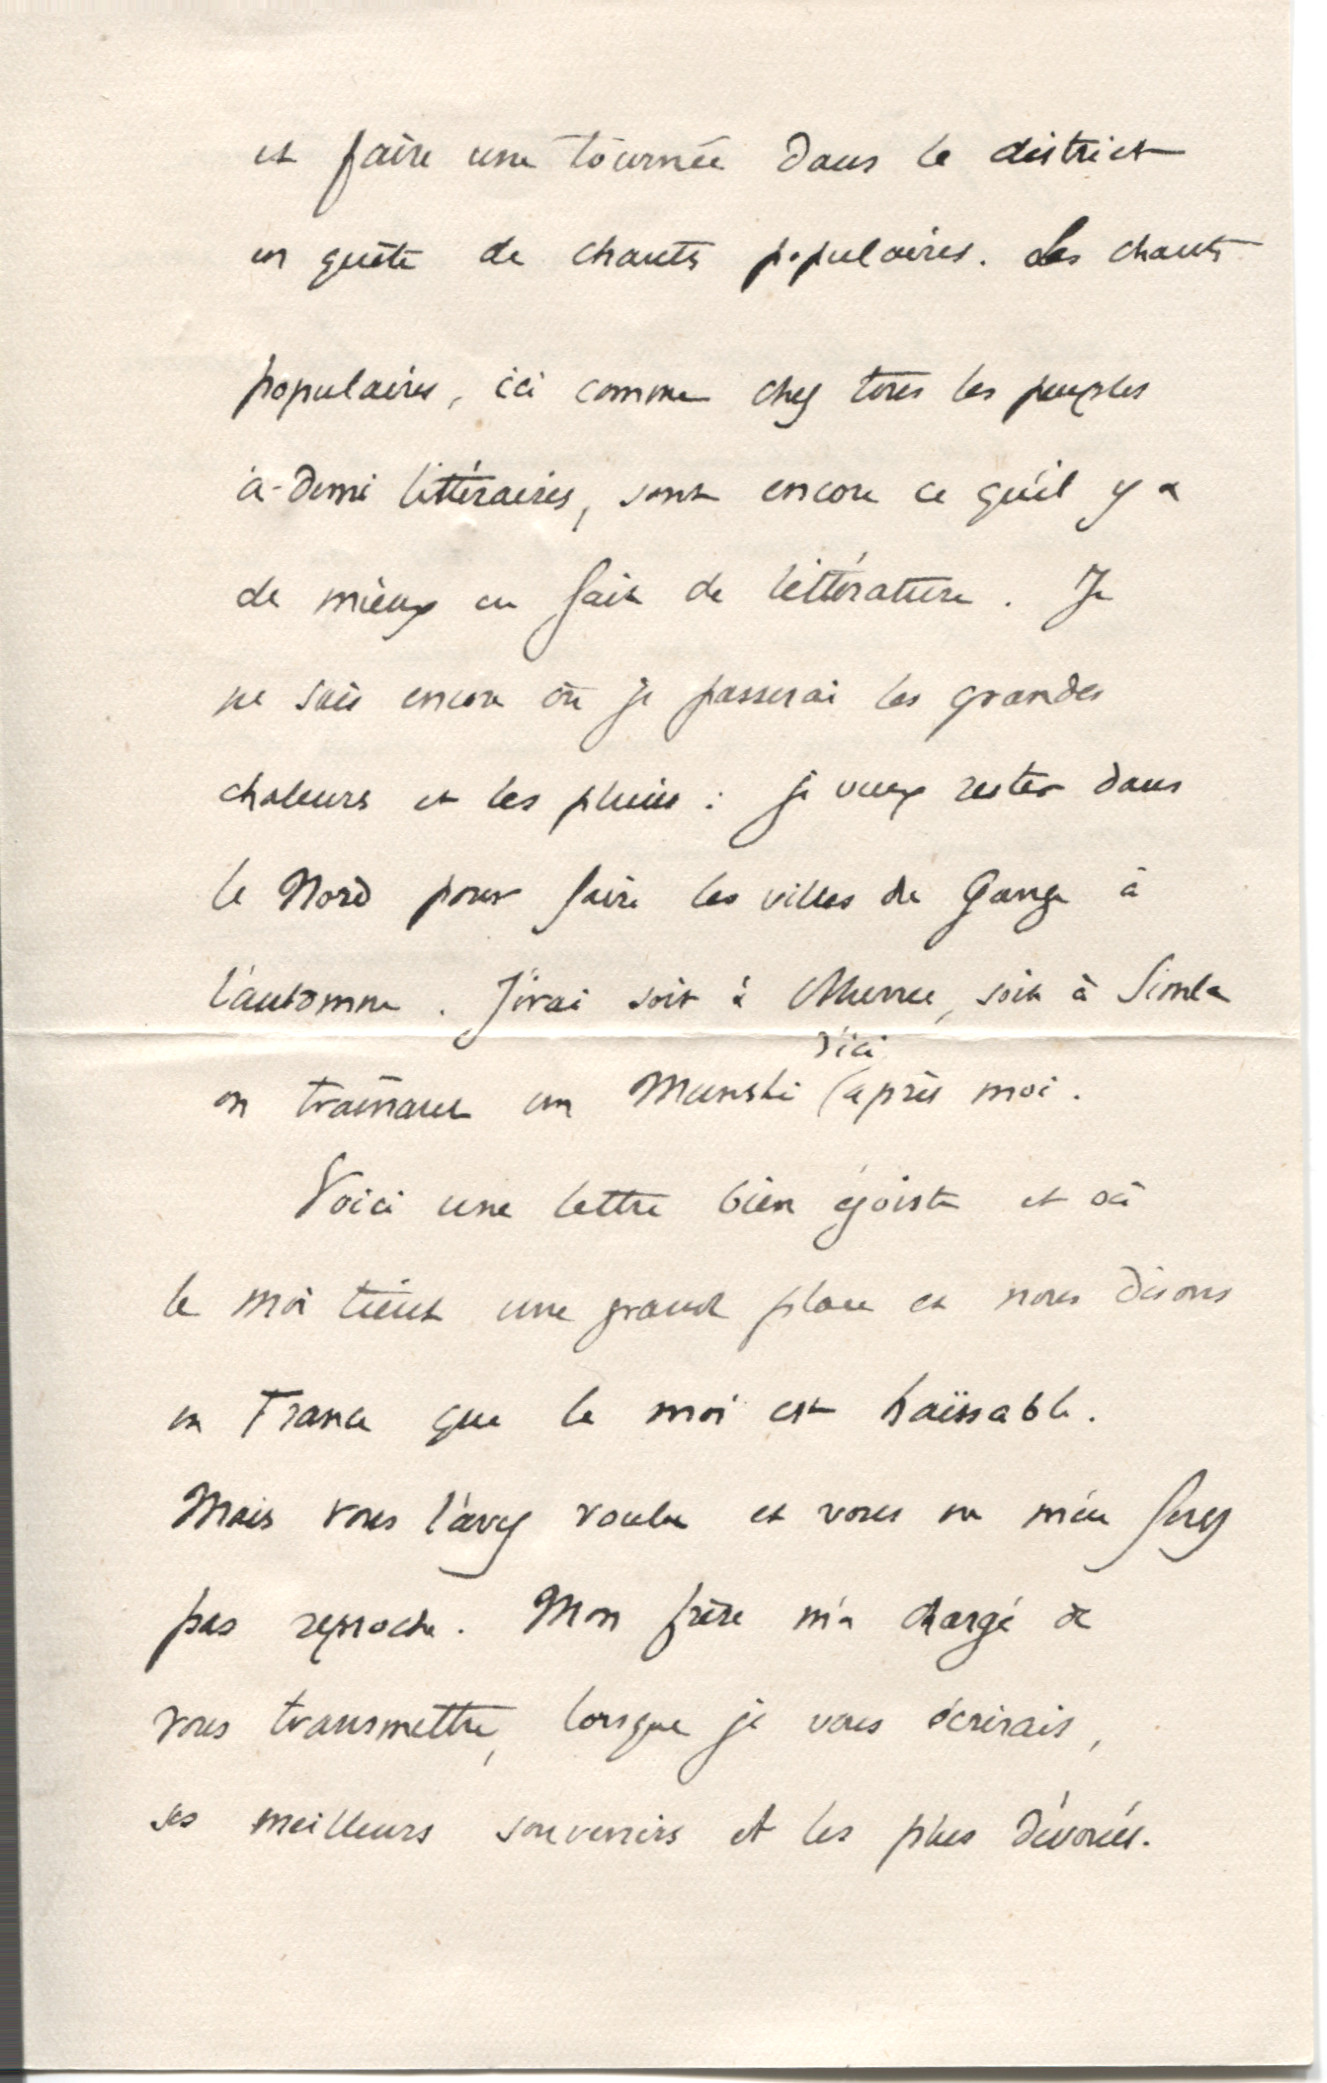 et faire une tournée dans le district
en quête de chants populaires. Les chants
populaires, ici comme chez tous les peuples
à-demi littéraires, sont encore ce qu'il y a
de mieux en fait de littérature. Je
ne sais encore où je passerai les grandes
chaleurs et les pluies : je veux rester dans
le Nord pour faire les villes du Gange à
l'automne. J'irai soit à Murree, soit à Simla
d'ici
en traînant un Munshi (après moi.
Voici une lettre bien égoïste et où
le moi tient une grande place et nous disons
en France que le moi est haïssable.
Mais vous l'avez voulu et vous ne m'en ferez
pas reproche. Mon frère m'a chargé de
vous transmettre, lorsque je vous écrirais,
ses meilleurs souvenirs et les plus dévoués.